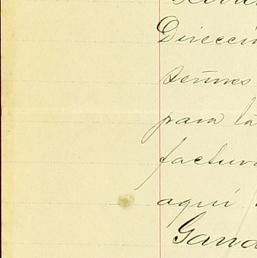 Direcci
señores
para la
factura
aquí
Gana